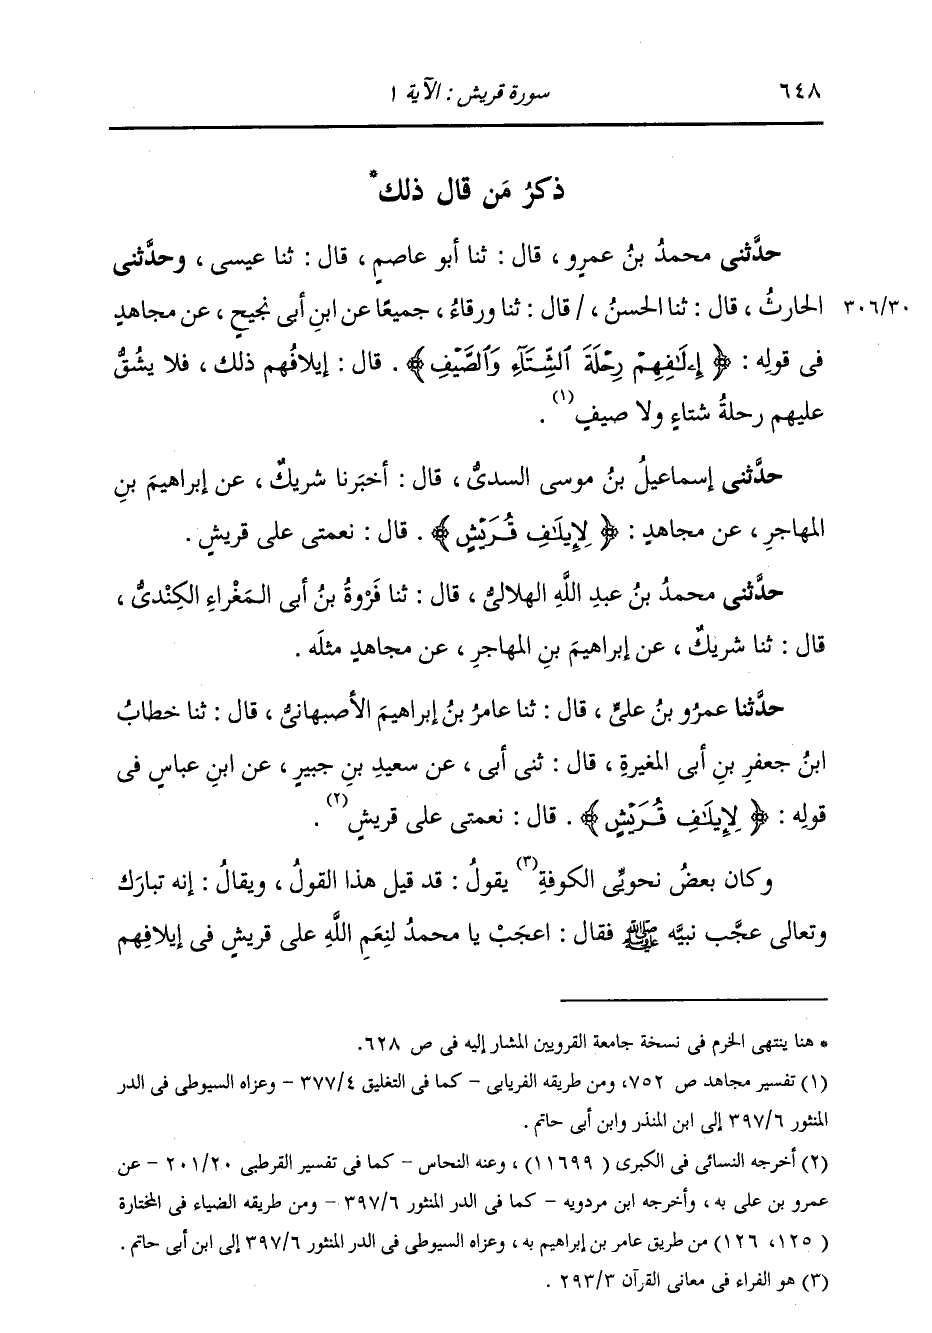 ٦٤٨ سورة قريش : الآية ١
ذكرُ مَن قال ذلك*
حدَّثنى محمدُ بنُ عمرٍو ، قال : ثنا أبو عاصمٍ ، قال : ثنا عيسى ، وحدَّثنى
٣٠٦/٣٠ الحارثُ ، قال : ثنا الحسنُ ، / قال : ثنا ورقاءُ ، جميعًا عن ابنِ أبى نجيحٍ ، عن مجاهدٍ
فى قولِه : ﴿ إِۦلَٰفِهِمْ رِحْلَةَ ٱلشِّتَآءِ وَٱلصَّيْفِ ﴾ . قال : إيلافُهم ذلك ، فلا يشُقُّ
عليهم رحلةُ شتاءٍ ولا صيفٍ (١) .
حدَّثنى إسماعيلُ بنُ موسى السدىُّ ، قال : أخبَرنا شريكٌ ، عن إبراهيمَ بنِ
المهاجرِ ، عن مجاهدٍ : ﴿ لِإِيلَٰفِ قُرَيْشٍ ﴾ . قال : نعمتى على قريشٍ .
حدَّثنى محمدُ بنُ عبدِ اللَّهِ الهلالىُّ ، قال : ثنا فَرْوةُ بنُ أبى المَغْراءِ الكِنْدىُّ ،
قال : ثنا شريكٌ ، عن إبراهيمَ بنِ المهاجرِ ، عن مجاهدٍ مثلَه .
حدَّثنا عمرُو بنُ علىٍّ ، قال : ثنا عامرُ بنُ إبراهيمَ الأصبهانىُّ ، قال : ثنا خطابُ
ابنُ جعفرِ بنِ أبى المغيرةِ ، قال : ثنى أبى ، عن سعيدِ بنِ جبيرٍ ، عن ابنِ عباسٍ فى
قولِه : ﴿ لِإِيلَٰفِ قُرَيْشٍ ﴾ . قال : نعمتى على قريشٍ (٢) .
وكان بعضُ نحويِّى الكوفةِ (٣) يقولُ : قد قيل هذا القولُ ، ويقالُ : إنه تبارَك
وتعالى عجَّب نبيَّه ﷺ فقال : اعجَبْ يا محمدُ لنِعَمِ اللَّهِ على قريشٍ فى إيلافِهم
* هنا ينتهى الخرم فى نسخة جامعة القرويين المشار إليه فى ص ٦٢٨.
(١) تفسير مجاهد ص ٧٥٢، ومن طريقه الفريابى - كما فى التغليق ٣٧٧/٤ - وعزاه السيوطى فى الدر
المنثور ٣٩٧/٦ إلى ابن المنذر وابن أبى حاتم .
(٢) أخرجه النسائى فى الكبرى ( ١١٦٩٩ ) ، وعنه النحاس - كما فى تفسير القرطبى ٢٠١/٢٠ - عن
عمرو بن على به ، وأخرجه ابن مردويه - كما فى الدر المنثور ٣٩٧/٦ - ومن طريقه الضياء فى المختارة
( ١٢٥، ١٢٦ ) من طريق عامر بن إبراهيم به ، وعزاه السيوطى فى الدر المنثور ٣٩٧/٦ إلى ابن أبى حاتم .
(٣) هو الفراء فى معانى القرآن ٢٩٣/٣ .